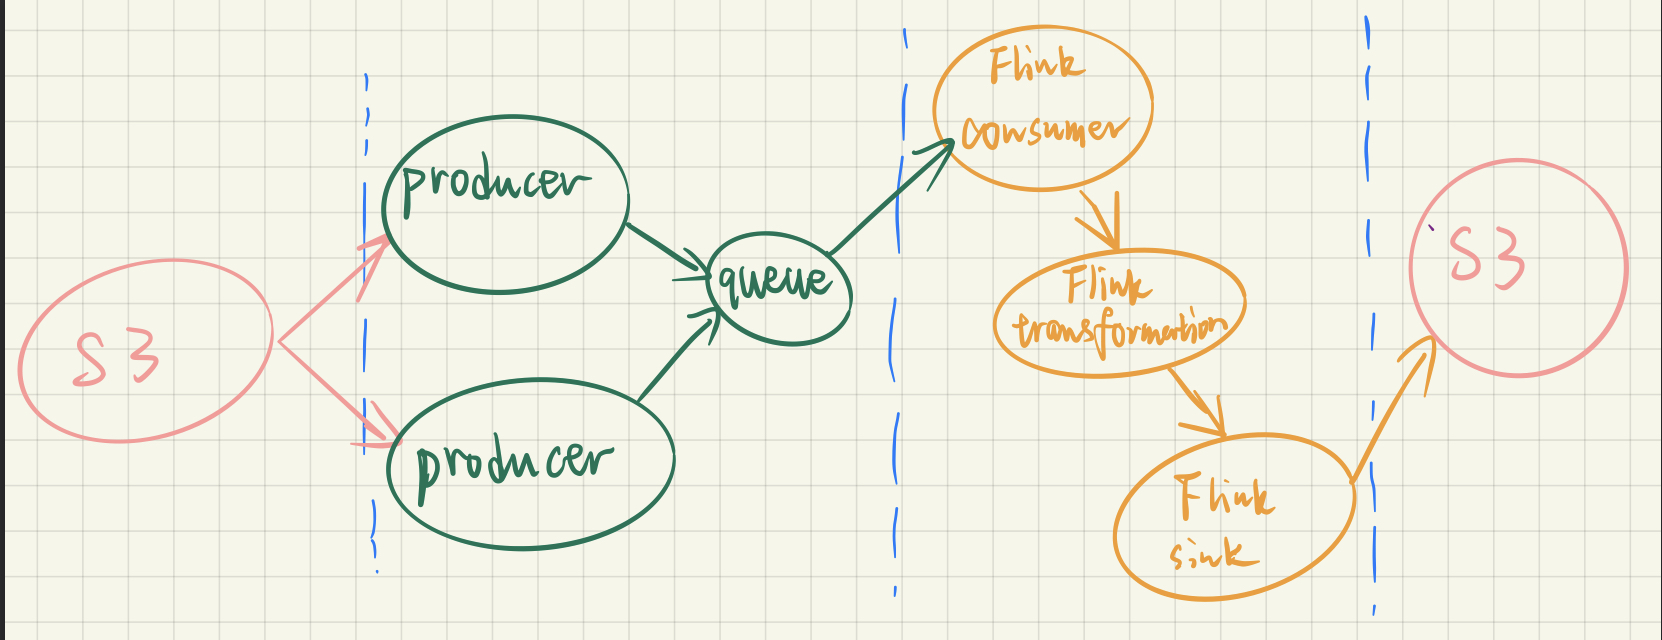 S3
producer
producer
queue
Flink
consumer
Flink
transformation
Flink
sink
S3